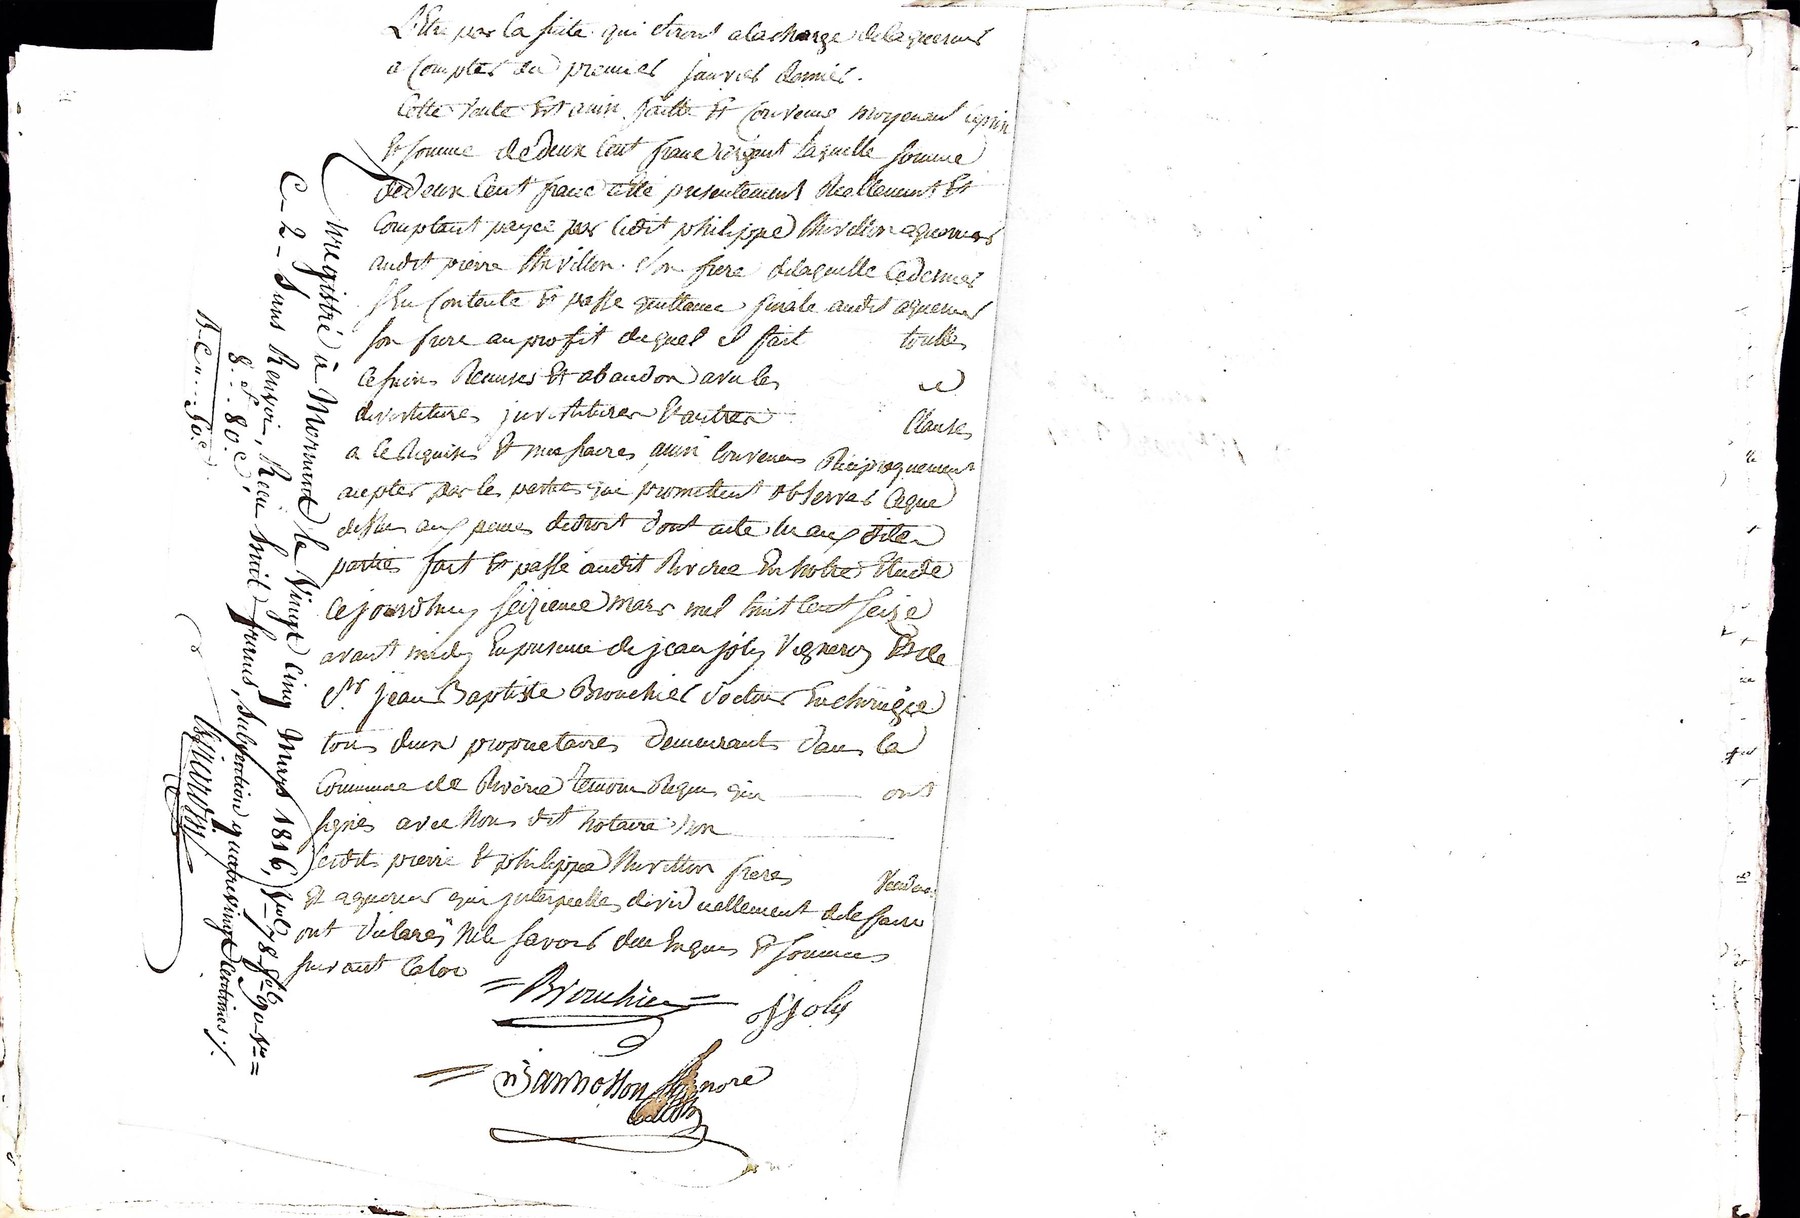 L'Etre par la suite qui seront alacharge delaquereur
a Compter du premier janvier dernier.
Cette vente Est ainsi faitte Et Convenue moyenant leprix
Et somme de deux Cent franc argent laquelle somme
de deux Cent franc a été presentement Reallement Et
Comptant payée par ledit philippe Thivillon aquereur
audit pierre Thivillon son frere delaquelle Cedernier
s'En Contente Et passe quittance finale audit aquereur
son frere au profit duquel il fait toutte
Cessions Remises Et abandon avec les
devestitures jnvestitures Et autres Clauses
a Ce Requises Et necessaires ainsi Convenu Reciproquement
acepter par les parties qui promettent observer Ceque
dessus aux peines dedroit dont acte lu aux dites
parties fait Et passé audit Riverie En notre Etude
Cejourdhuy seizieme mars mil huit Cent seize
avant midy En presence de jean joly Vigneron Et de
Sr jean Baptiste Brouchier docteur En chirurgie
tous deux propriétaires demeurants dans la
Commune de Riverie temoins Requis qui ont
signés avec Nous dit notaire non
lesdits pierre Et philippe Thivillon freres Vendeur
Et aquereur qui jnterpellés dividuellement dele faire
ont déclarés Nele savoir dece Enquis Et sommés
suivant la loi
Brouchier
J Joly
Bannosson Nore
Enregistré à Mornant le Vingt cinq Mars 1816, Vol. 78 fo 90 Vo
C. 2 - Sans Renvoi, Reçu huit francs, subvention quatre vingt Centimes ./.
8 f. 80 c.